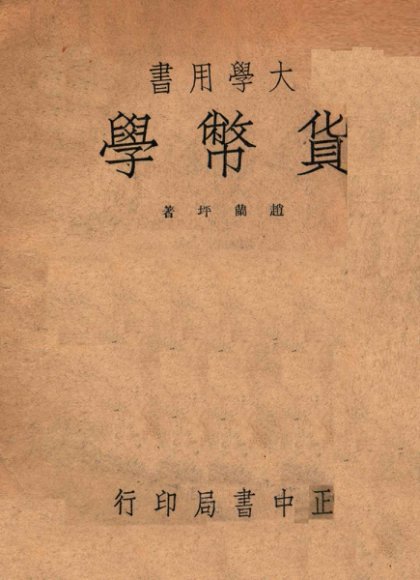 大學用書
貨幣學
趙蘭坪 著
正中書局印行